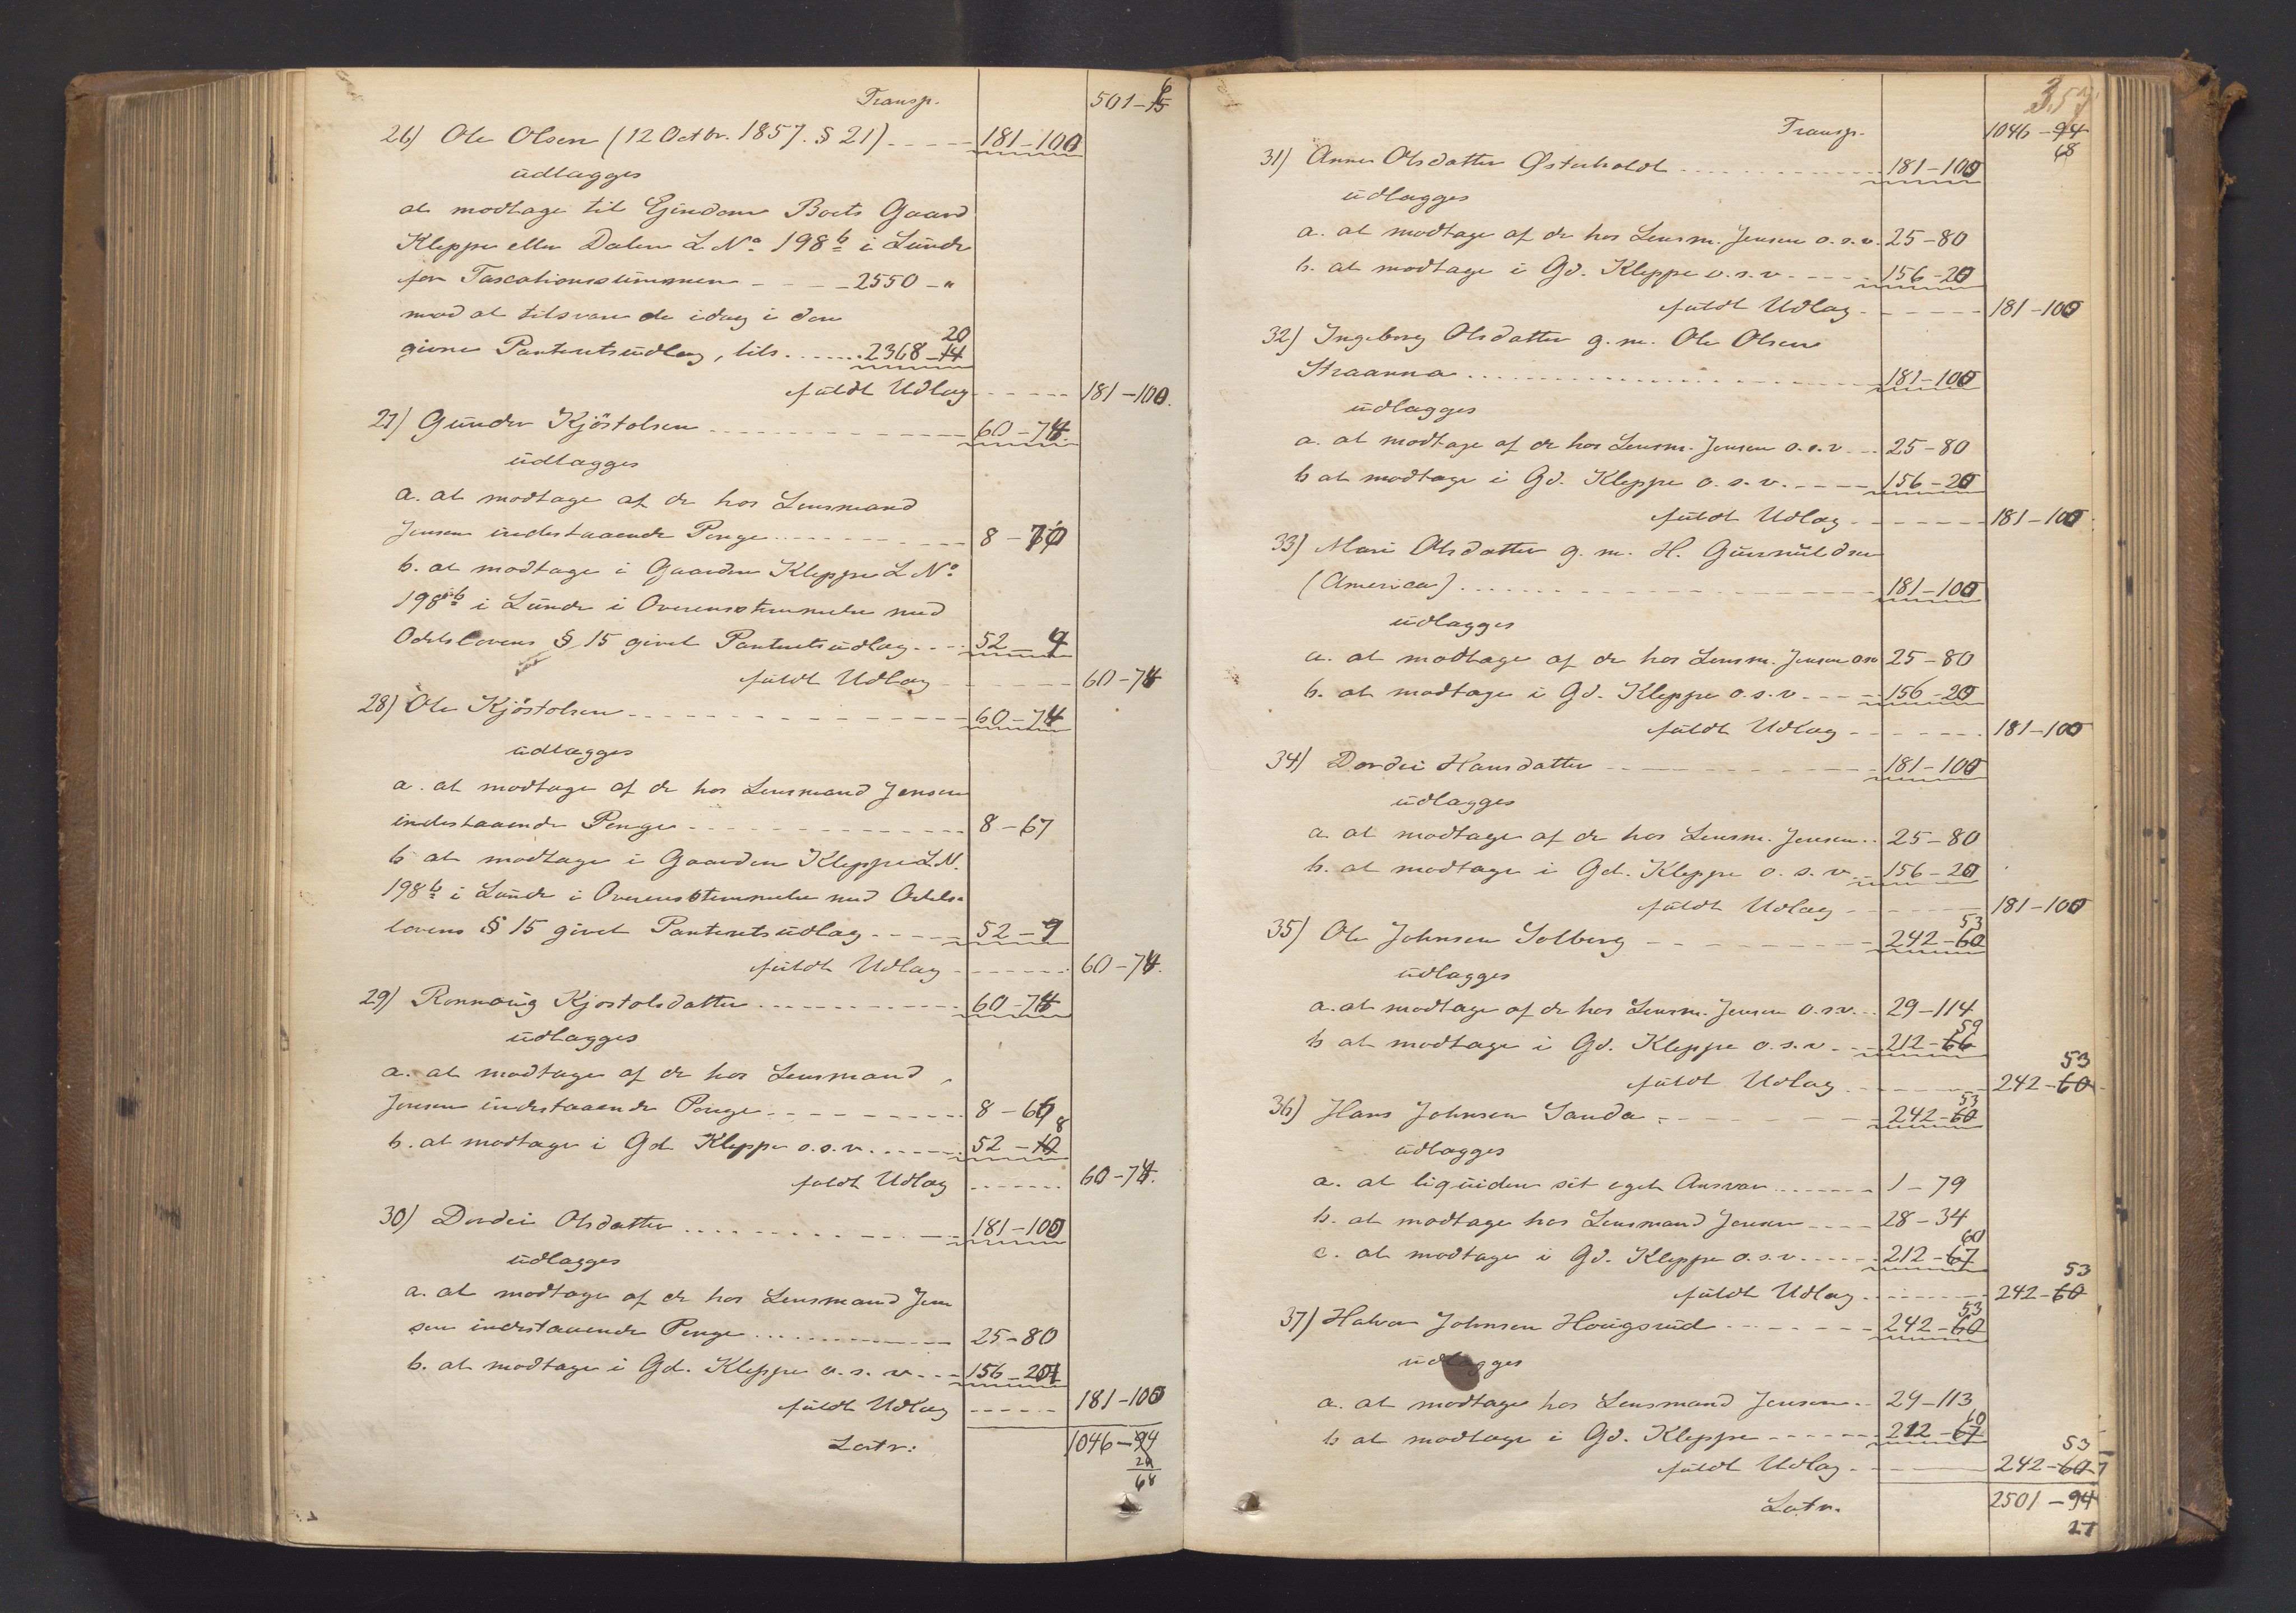 Transp. 501-6
26) Ole Olsen (12 Octbr. 1857. § 21) 181-100
udlægges
at modtage til Eiendom Boets Gaard
Kleppe eller Dalen L No 198 b i Lunde
for Taxationssummen 2550 - "
mod at tilsvare de idag i den
20
givne Panteretsudlæg, tils. 2368-14
fuldt Udlæg 181-100.
27) Gunder Kjöstolsen 60-74
udlægges
a. at modtage af de hos Lensmand
Jensen indestaaende Penge 8-70
b. at modtage i Gaarden Kleppe L No
198 b i Lunde i Overensstemmelse med
Odelslovens § 15 givet Panteretsudlæg 52-4
fuldt Udlæg 60-74
28) Ole Kjöstolsen 60-74
udlægges
a. at modtage af de hos Lensmand Jensen
indestaaende Penge 8-67
b at modtage i Gaarden Kleppe L N.
198 b i Lunde i Overensstemmelse med Odels-
lovens § 15 givet Panteretsudlæg 52-9
fuldt Udlæg 60-74.
29) Ronnoug Kjostolsdatter 60-74
udlægges
a. at modtage af de hos Lensmand
Jensen indestaaende Penge 8-66
8
b. at modtage i Gd Kleppe o.s.v. 52-10
fuldt Udlæg 60-74.
30) Dordei Olsdatter 181-100
udlægges
a. at modtage af de hos Lensmand Jen
sen indestaaende Penge 25-80
b. at modtage i Gd. Kleppe o.s.v. 156-20
fuldt Udlæg 181-100
Latr: 1046-94
26
68
353
Transp. 1046-94
68
31) Anne Olsdatter Østerholdt 181-100
udlægges
a. at modtage af de hos Lensm. Jensen o.s.v. 25-80
b. at modtage i Gd. Kleppe o.s.v. 156-20
fuldt Udlæg 181-100
32) Ingeborg Olsdatter g. m. Ole Olsen
Straanna 181-100
udlægges
a. at modtage af de hos Lensm. Jensen o.s.v 25-80
b at modtage i Gd. Kleppe o.s.v. 156-20
fuldt Udlæg 181-100
33) Mari Olsdatter g. m. H. Gunnuldsen
(America) 181-100
udlægges
a. at modtage af de hos Lensm. Jensen osv 25-80
b. at modtage i Gd. Kleppe o.s.v. 156-20
fuldt Udlæg 181-100
34) Dordei Hansdatter 181-100
udlægges
a. at modtage af de hos Lensm. Jensen 25-80
b. at modtage i Gd. Kleppe o.s.v. 156-20
fuldt Udlæg 181-100
53
35) Ole Johnsen Solberg 242-60
udlægges
a. at modtage af de hos Lensm. Jensen o.s.v. 29-114
59
b at modtage i Gd. Kleppe o.s.v. 212-66
53
fuldt Udlæg 242-60
53
36) Hans Johnsen Sanda 242-60
udlægges
a. at liquidere sit eget Ansvar 1-79
b. at modtage hos Lensmand Jensen 28-34
60
c. at modtage i Gd. Kleppe o.s.v. 212-67
53
fuldt Udlæg 242-60
53
37) Halvor Johnsen Hougsrud 242-60
udlægges
a. at modtage hos Lensmand Jensen 29-113
60
b at modtage i Gd. Kleppe 212-67
53
fuldt Udlæg 242-60
Latr. 2501-94
27